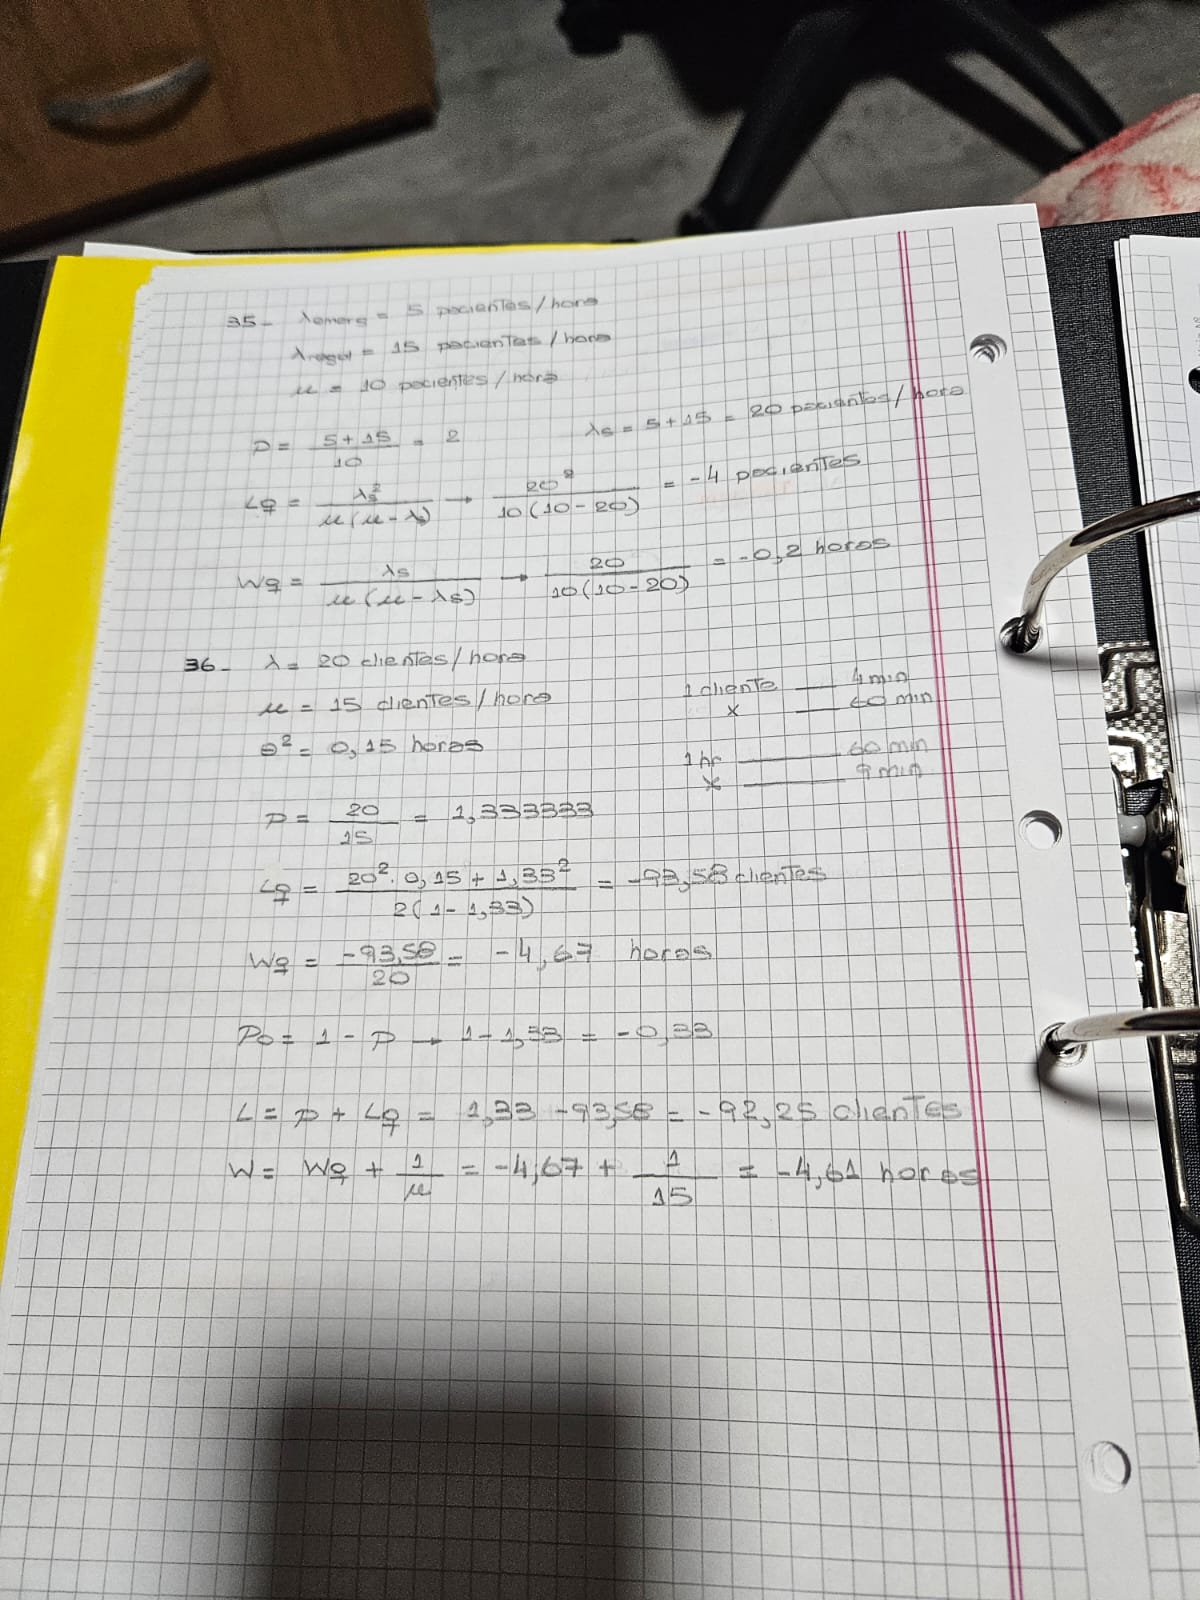 35- λemerg = 5 pacientes/hora
λregul = 15 pacientes/hora
μ = 10 pacientes/hora
P = (5+15)/10 = 2 λs = 5+15 = 20 pacientes/hora
Lq = λs²/(μ(μ-λ)) → 20²/(10(10-20)) = -4 pacientes
Wq = λs/(μ(μ-λs)) → 20/(10(10-20)) = -0,2 horas
36- λ = 20 clientes/hora
μ = 15 clientes/hora 1 cliente — 4 min
x — 60 min
θ² = 0,15 horas 1 hr — 60 min
x — 9 min
P = 20/15 = 1,333333
Lq = (20² · 0,15 + 1,33²)/(2(1-1,33)) = -93,58 clientes
Wq = -93,58/20 = -4,67 horas
Po = 1 - P → 1-1,33 = -0,33
L = P + Lq = 1,33 -93,58 = -92,25 clientes
W = Wq + 1/μ = -4,67 + 1/15 = -4,61 horas